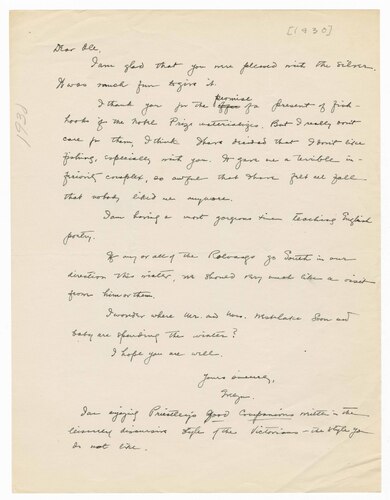 [1930]
1930
Dear Ole,
I am glad that you were pleased with the silver.
It was much fun to give it.
I thank you for the promise of a present of fish-
hooks if the Nobel Prize materializes. But I really don't
care for them, I think I have decided that I don't like
fishing, especially with you. It gave me a terrible in-
feriority complex, so awful that I have felt all fall
that nobody liked me anymore.
I am having a most gorgeous time teaching English
poetry.
If any or all of the Rolvaags go South in our
direction this winter, we should very much like a visit
from him or them.
I wonder where Mr. and Mrs. Soon and
baby are spending the winter?
I hope you are well.
Yours sincerely,
I am enjoying Priestley's Good Companions written in the
leisurely discursive style of the Victorians - the style you
do not like.